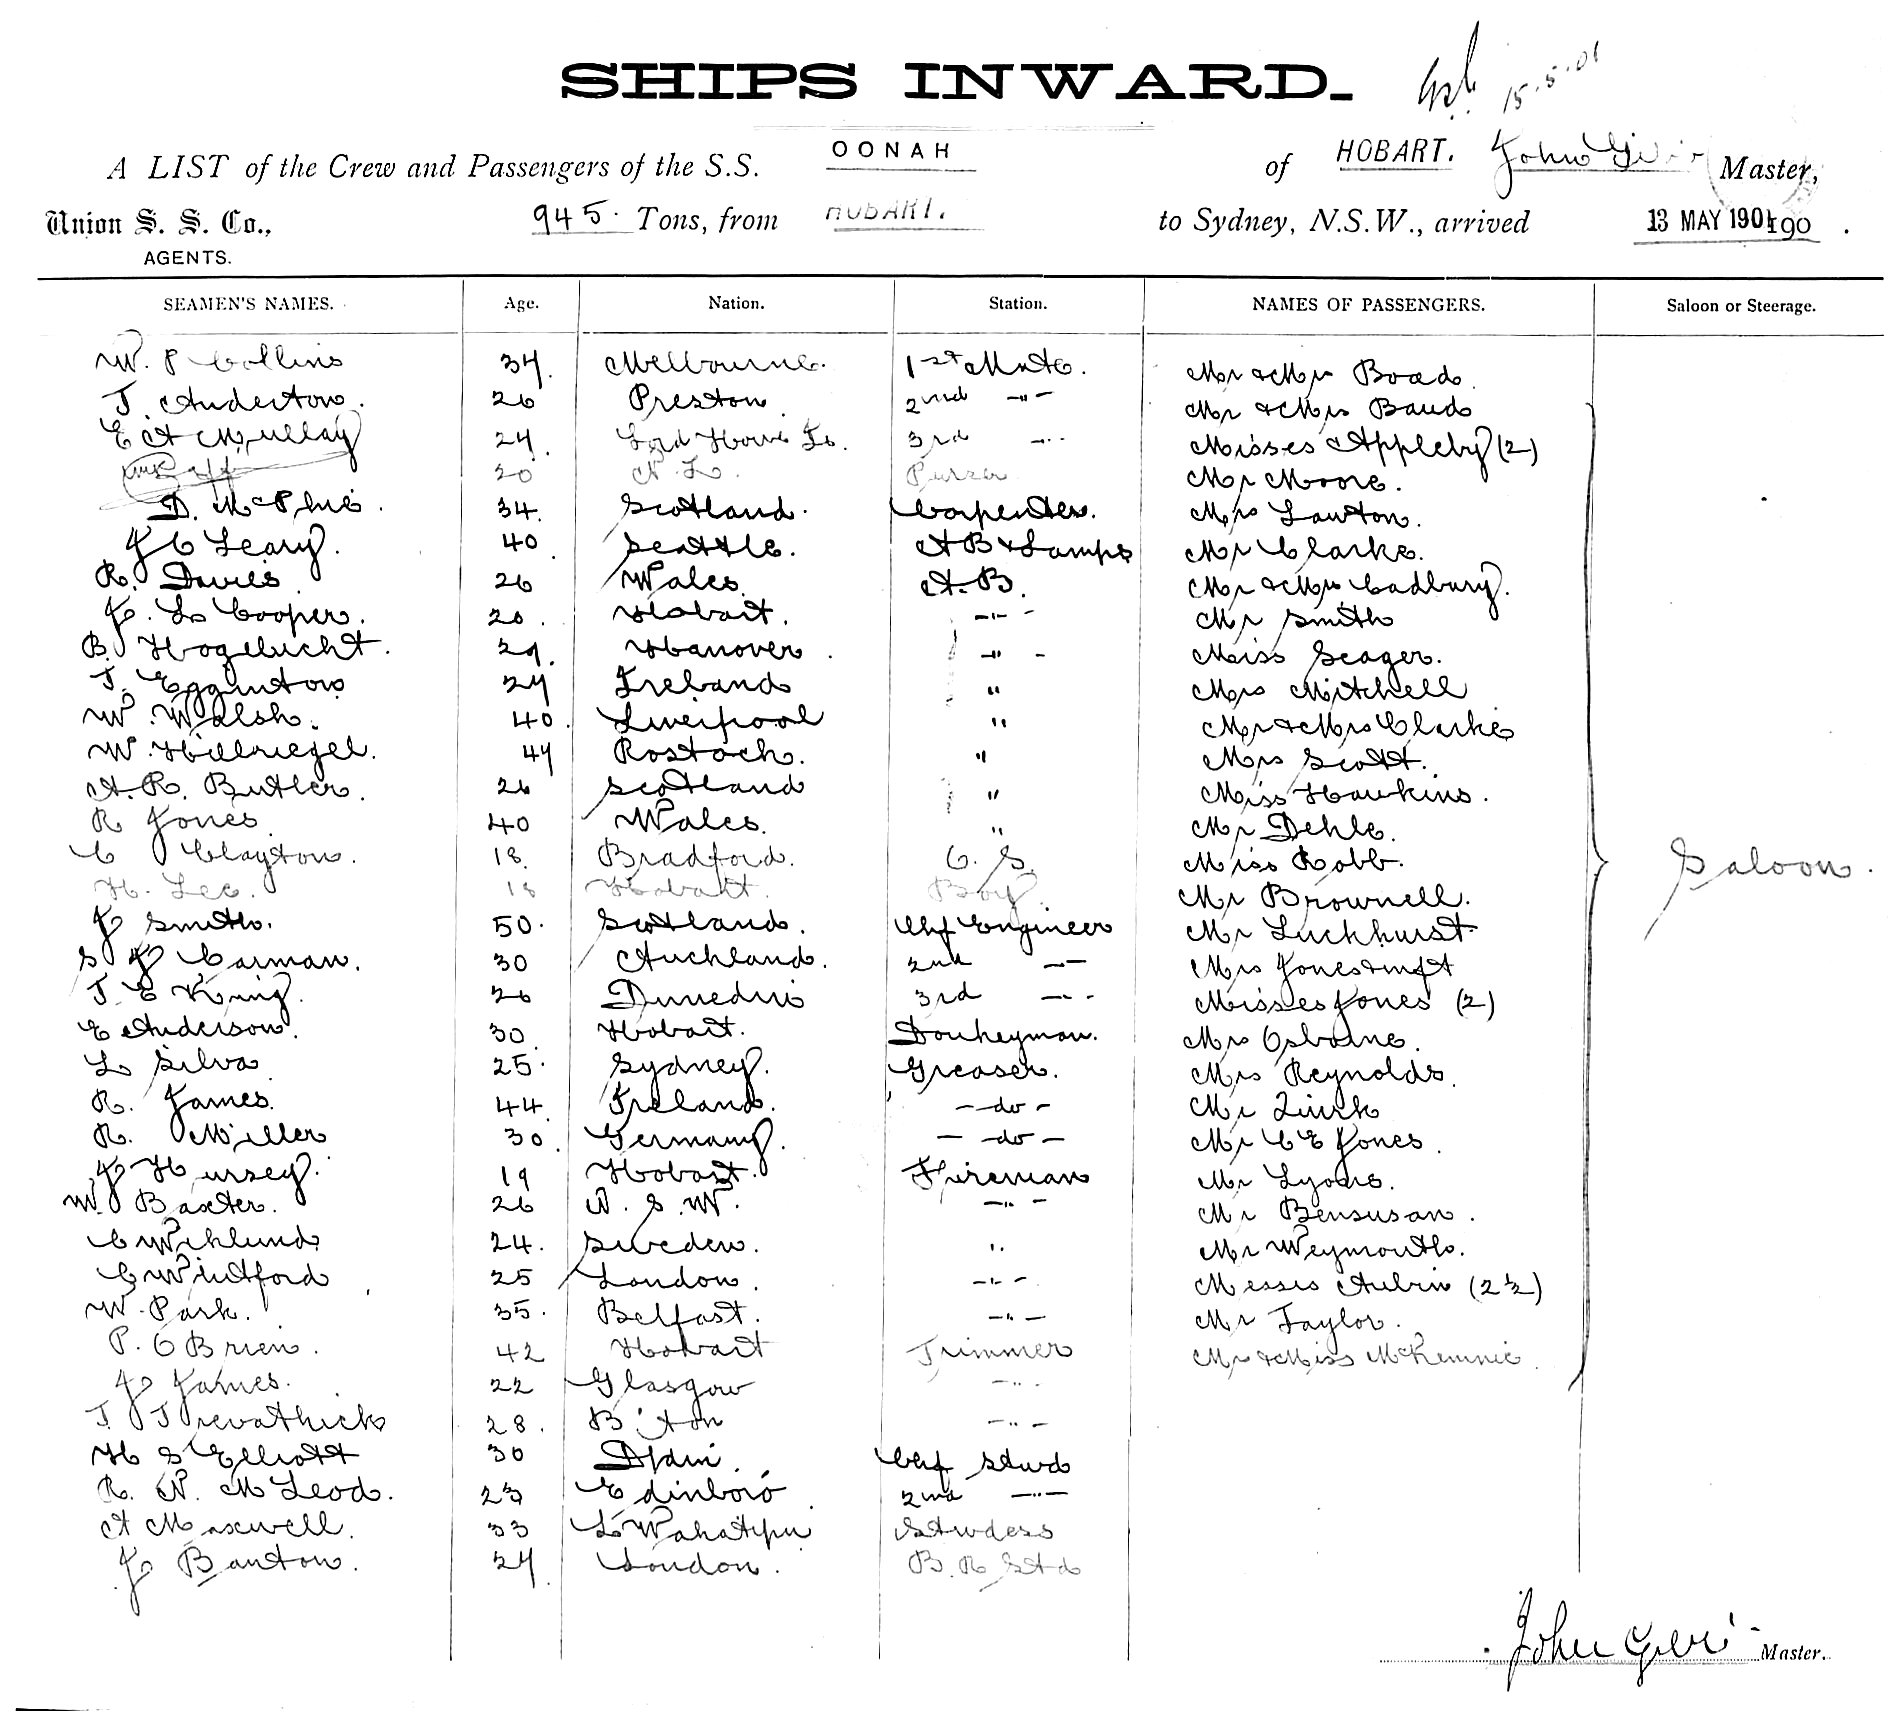 SHIPS INWARD.
15.5.01
A LIST of the Crew and Passengers of the S.S. OONAH of HOBART. John Master,
Union S. S. Co., 945 Tons, from HOBART. to Sydney, N.S.W., arrived 13 MAY 1901 190 .
AGENTS.
SEAMEN'S NAMES. Age. Nation. Station. NAMES OF PASSENGERS. Saloon or Steerage.
W. P Collins 34. Melbourne. 1st Mate.
Mr & Mrs
J. Anderton. 26 Preston 2nd -"-
Mr & Mrs Baud
E A Mullay 24. Lord Howe Is. 3rd -"-
Misses Appleby (2)
20 N Z. Purser
Mr Moore.
D. McPhie. 34. Scotland. Carpenter.
Mrs Lawton.
J C Leary. 40 Seattle. A B & Lamps
Mr Clarke.
R. Davies 26 Wales. A. B.
Mr & Mrs Cadbury.
J. L Cooper. 20. Hobart. -"-
Mr Smith
B. Hogelucht. 29. Hanover. -"-
Miss Seager.
J. Egginton 24 Ireland "
Mrs Mitchell
W. Walsh. 40. Liverpool "
Mr & Mrs Clarke
W. Hillriegel. 44 Rostock. "
Mrs Scott.
A. R. Butler. 26 Scotland "
Miss Hawkins.
R Jones 40 Wales. "
Mr Dehle.
C Clayton. 18. Bradford. O. S.
Miss Robb.
Saloon.
H. Lee. 18 Hobart. Boy.
Mr Brownell.
J Smith. 50. Scotland. Chf Engineer
Mr Luckhurst
S J Carman. 30 Auckland. 2nd -"-
Mrs Jones & inft
J E King. 26 Dunedin 3rd -"-
Misses Jones (2)
E Anderson. 30. Hobart. Donkeyman.
Mrs Osborne.
L Silva 25. Sydney. Greaser.
Mrs Reynolds.
R. James. 44. Ireland. -do-
Mr Quirk
R. Miller 30. Germany. -do-
Mr C E Jones.
J Hursey. 19 Hobart. Fireman
Mr Lyons.
W. Baxter. 26 N. S. W. -"-
Mr Bensusan.
C Wiklund 24. Sweden. "
Mr Weymouth.
C Wintford 25 London. -"-
Misses Aubin
W. Park. 35. Belfast. -"-
Mr Taylor.
P. O Brien. 42 Hobart Trimmer
Mr & Miss McKennie.
J James. 22 Glasgow -"-
J. Trevathick 28. -"-
H S Elliott 30 Chf Stwd
R. N. McLeod. 23 Edinboro 2nd -"-
A Maxwell. 33 L Wakatipu Stwdess
J Banton. 24. London. B. R Std
John Master.